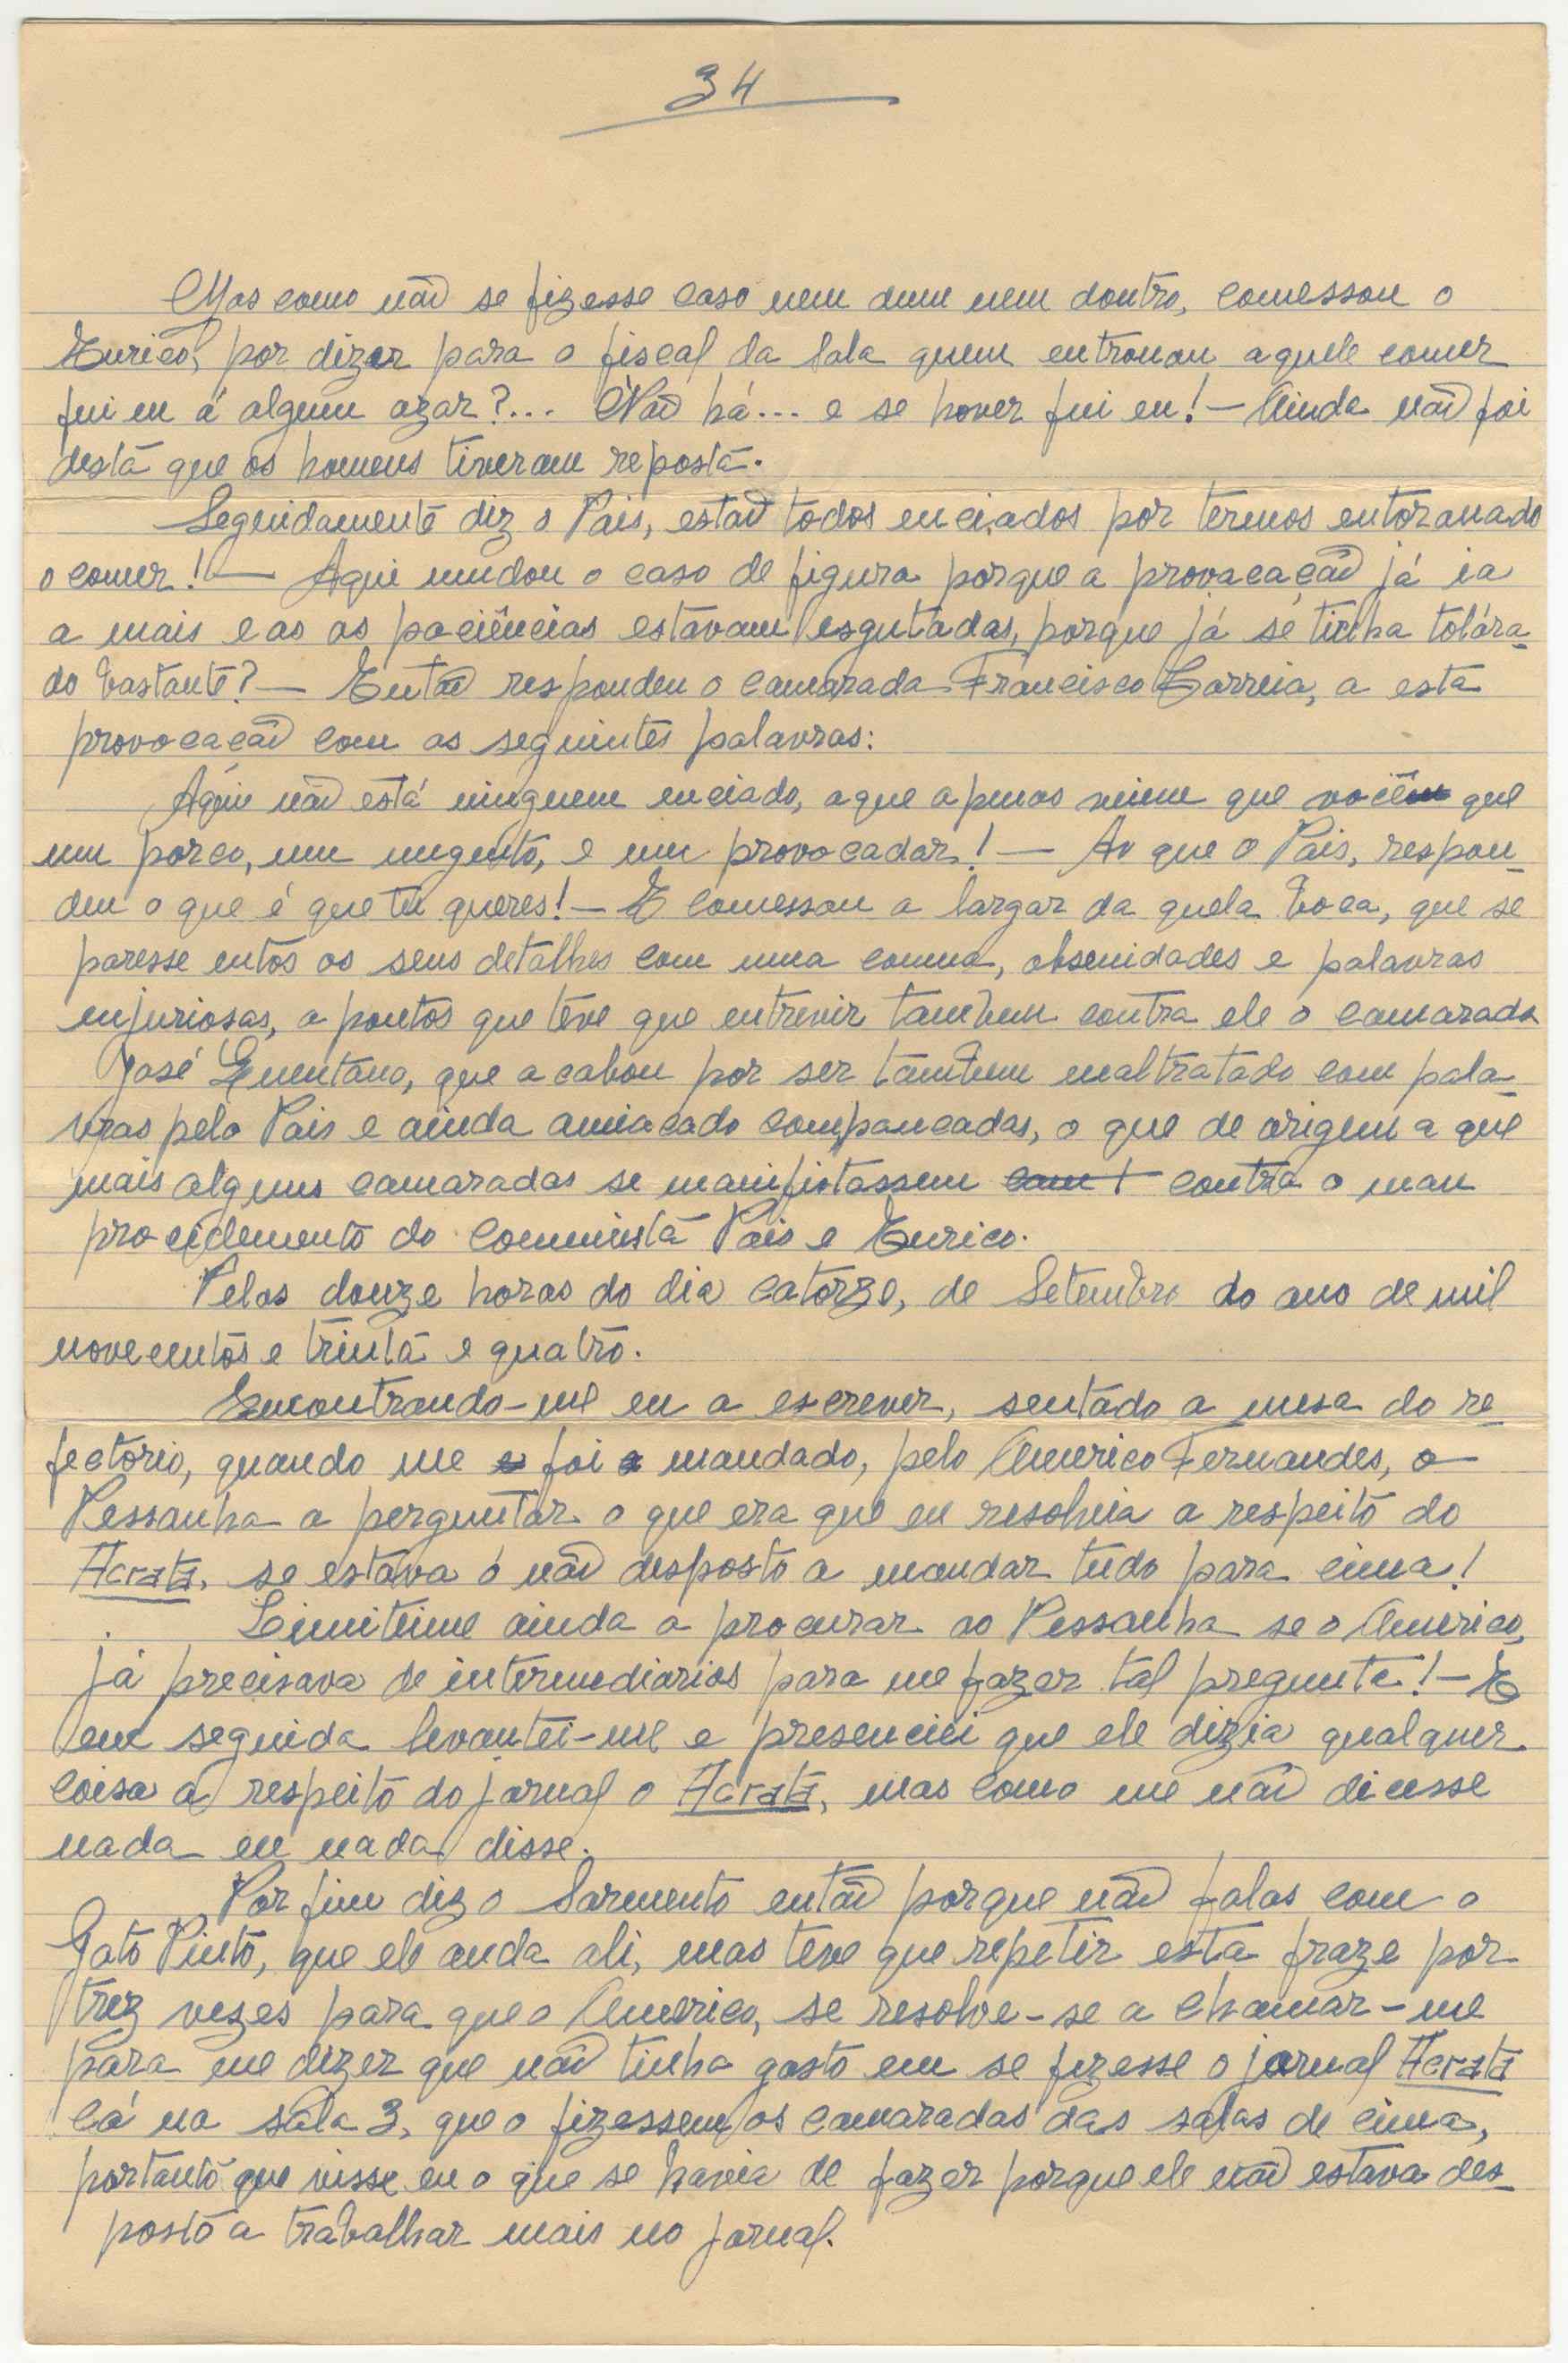 34
Mas como não se fizesse caso nem dum nem doutro, comessou o
Eurico, por dizer para o fiscal da Sala quem entronou aquele comer
fui eu á algum azar?... Não há... e se hover fui eu! — Ainda não foi
desta que os homens tiveram reposta.
Seguidamente diz o Pais, estão todos enciados por termos entoranado
o comer! — Aqui mudou o caso de figura porque a provacação já ia
a mais e as as paciências estavam esgutadas, porque já se tinha tolára-
do bastante? — Então respondeu o camarada Francisco Correia, a esta
provocação com as seguintes palavras:
Aqui não está ninguem enciado, aque apenas nium que você que
um porco, um nugento, e um provocadar! — Ao que o Pais, respon-
deu o que é que tu queres! — E comessou a largar da quela boca, que se
paresse entos os seus detalhes com uma comua, obsenidades e palavras
enjuriosas, a pontos que têve que entrevir tambem contra ele o camarada
José Quentano, que acabou por ser tambem maltratado com pala-
vras pelo Pais e ainda amiacado companeadas, o que de origem a que
mais alguns camaradas se manifistassem cam t contra o mau
procidemento do Comunista Pais e Eurico.
Pelas douze horas do dia catorze, de Setembro do ano de mil
novecentos e trinta e quatro.
Encontrando-me eu a escrever, sentado a mesa do re-
fectorio, quando me e foi a mandado, pelo Americo Fernandes, o
Pessanha a perguntar o que era que eu resolvia a respeito do
Acrata, se estava ó não desposto a mandar tudo para cima!
Limiteime ainda a procurar ao Pessanha se o Americo,
já precisava de intermediarios para me fazer tal pregunta! — E
em seguida levantei-me e presenciei que ele dizia qualquer
coisa a respeito do jornal o Acrata, mas como me não dicesse
nada eu nada disse.
Por fim diz o Sarmento então porque não falas com o
Gato Pinto, que ele anda ali, mas teve que repetir esta fraze por
trez vezes para que o Americo, se resolve-se a chamar-me
para me dizer que não tinha gosto em se fizesse o jornal Acrata
cá na sala 3, que o fizessem os camaradas das salas de cima,
portanto que visse eu o que se havia de fazer porque ele não estava des-
posto a trabalhar mais no jornal.